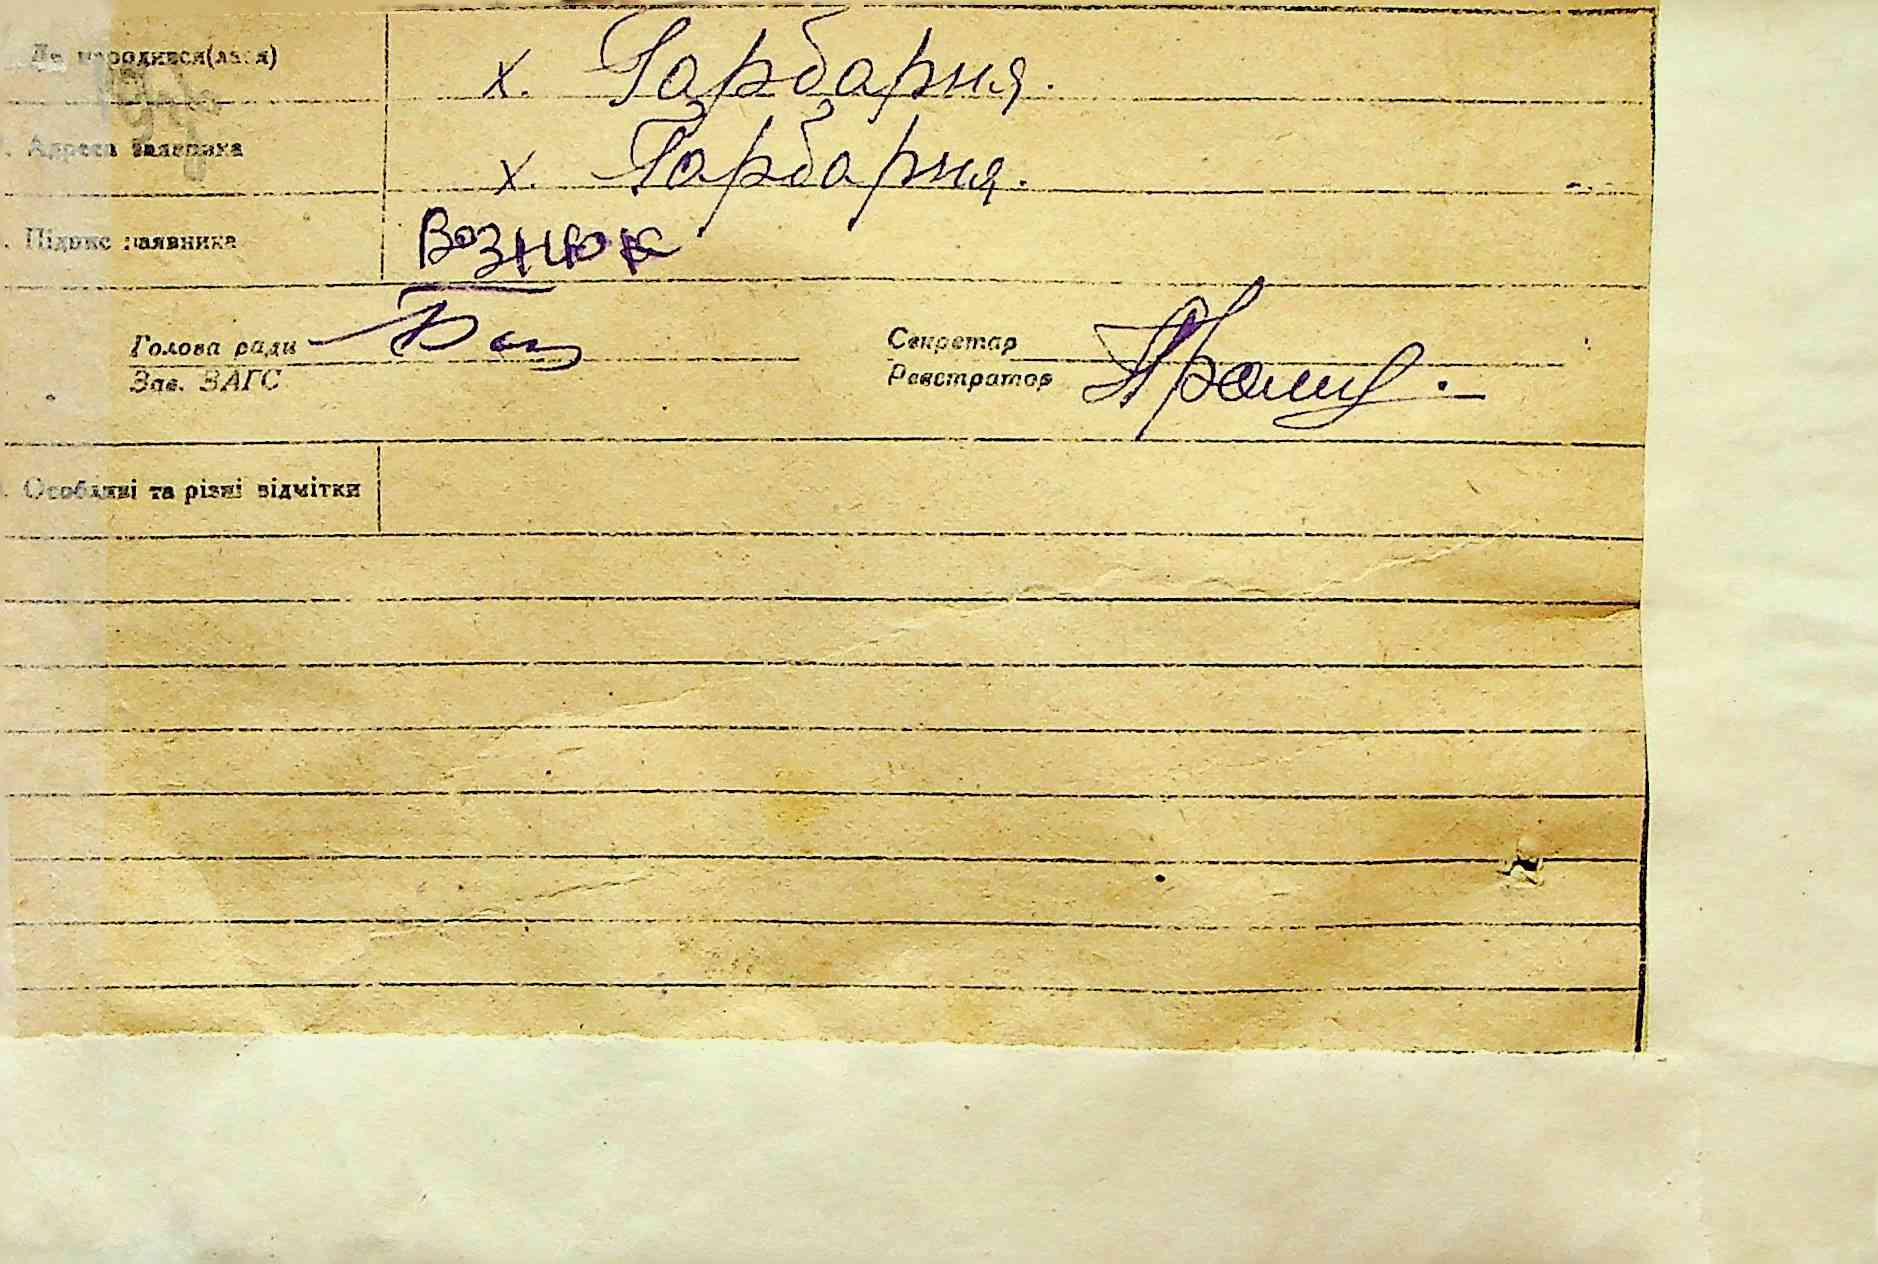 Де народився(лася) х. Гарбарня.
. Адреса заявника х. Гарбарня.
. Підпис заявника Вознюк
Голова ради Секретар
Зав. ЗАГС Реєстратор
. Особливі та різні відмітки